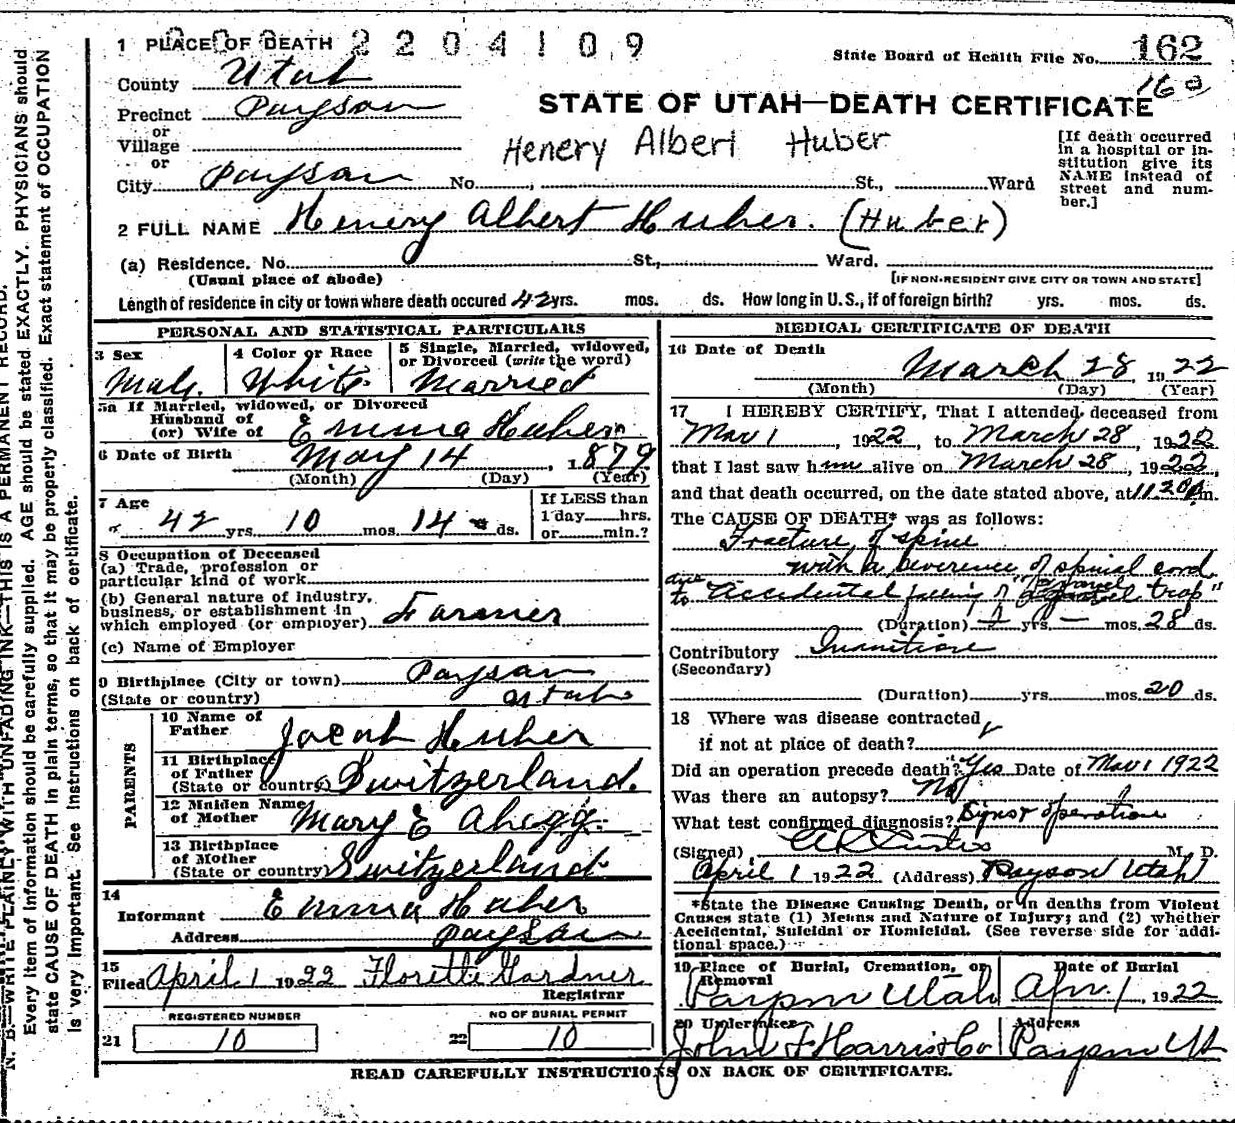 1 PLACE OF DEATH 2 2 0 4 1 0 9
State Board of Health File No. 162
County Utah
160
Precinct Payson
STATE OF UTAH—DEATH CERTIFICATE
or
Village
Henery Albert Huber
or
City Payson No. , St., Ward
[If death occurred in a hospital or in-
stitution give its
NAME instead of
street and num-
ber.]
2 FULL NAME Henery Albert Huber. (Huber)
(a) Residence. No. St., Ward.
(Usual place of abode) [IF NON-RESIDENT GIVE CITY OR TOWN AND STATE]
Length of residence in city or town where death occured 42 yrs. mos. ds. How long in U. S., if of foreign birth? yrs. mos. ds.
PERSONAL AND STATISTICAL PARTICULARS
3 Sex
Male
4 Color or Race
White
5 Single, Married, widowed,
or Divorced (write the word)
Married
5a If Married, widowed, or Divorced
Husband of
(or) Wife of Emma Huber
6 Date of Birth May 14, 1879
(Month) (Day) (Year)
7 Age
42 yrs. 10 mos. 14 ds.
If LESS than
1 day hrs.
or min.?
8 Occupation of Deceased
(a) Trade, profession or
particular kind of work
(b) General nature of industry,
business, or establishment in
which employed (or employer) Farmer
(c) Name of Employer
9 Birthplace (City or town) Payson
(State or country) Utah
PARENTS
10 Name of
Father Jacob Huber
11 Birthplace
of Father
(State or country) Switzerland.
12 Maiden Name
of Mother Mary E Ahegg
13 Birthplace
of Mother
(State or country) Switzerland
14
Informant Emma Huber
Address Payson
15
Filed April 1 1922 Florette Gardner
Registrar
REGISTERED NUMBER
21 10
NO OF BURIAL PERMIT
22 10
MEDICAL CERTIFICATE OF DEATH
16 Date of Death
March 28 1922
(Month) (Day) (Year)
17 I HEREBY CERTIFY, That I attended deceased from
Mar 1, 1922, to March 28, 1922
that I last saw him alive on March 28, 1922,
and that death occurred, on the date stated above, at 11.20 m.
The CAUSE OF DEATH* was as follows:
Fracture of spine
with a severence of spinal cord
due
to accidental falling of "gravel trap"
(Duration) yrs. — mos. 28 ds.
Contributory Inanition
(Secondary)
(Duration) yrs. mos. 20 ds.
18 Where was disease contracted
if not at place of death?
Did an operation precede death? Yes Date of Mar 1 1922
Was there an autopsy? No
What test confirmed diagnosis? Signs & operation
(Signed) A R Curtis M. D.
April 1 1922 (Address) Payson Utah
*State the Disease Causing Death, or in deaths from Violent
Causes state (1) Means and Nature of Injury; and (2) whether
Accidental, Suicidal or Homicidal. (See reverse side for addi-
tional space.)
19 Place of Burial, Cremation, or
Removal
Payson Utah
Date of Burial
Apr. 1, 1922
20 Undertaker
John F Harris & Co
Address
Payson Ut
READ CAREFULLY INSTRUCTIONS ON BACK OF CERTIFICATE.
N. B.—WRITE PLAINLY WITH UNFADING INK—THIS IS A PERMANENT RECORD.
Every item of information should be carefully supplied. AGE should be stated EXACTLY. PHYSICIANS should
state CAUSE OF DEATH in plain terms, so that it may be properly classified. Exact statement of OCCUPATION
is very important. See instructions on back of certificate.